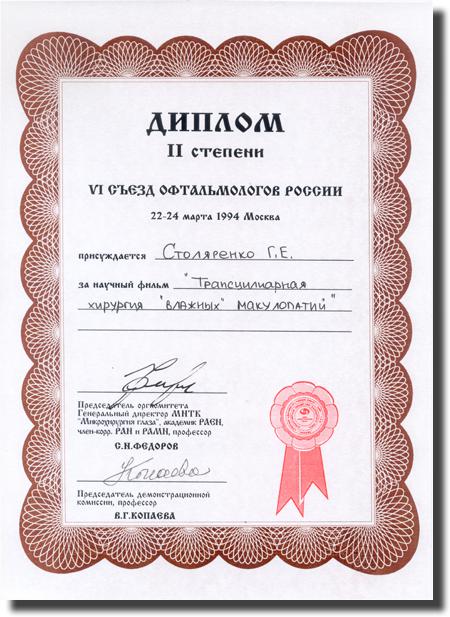 ДИПЛОМ
II СТЕПЕНИ
VI СЪЕЗД ОФТАЛЬМОЛОГОВ РОССИИ
22-24 марта 1994 Москва
присуждается Столяренко Г.Е.
за научный фильм "Трансцилиарная
хирургия "влажных" макулопатий"
Председатель оргкомитета
Генеральный директор МНТК
"Микрохирургия глаза", академик РАЕН,
член-корр. РАН и РАМН, профессор
С.Н.ФЕДОРОВ
Копаева
Председатель демонстрационной
комиссии, профессор
В.Г.КОПАЕВА